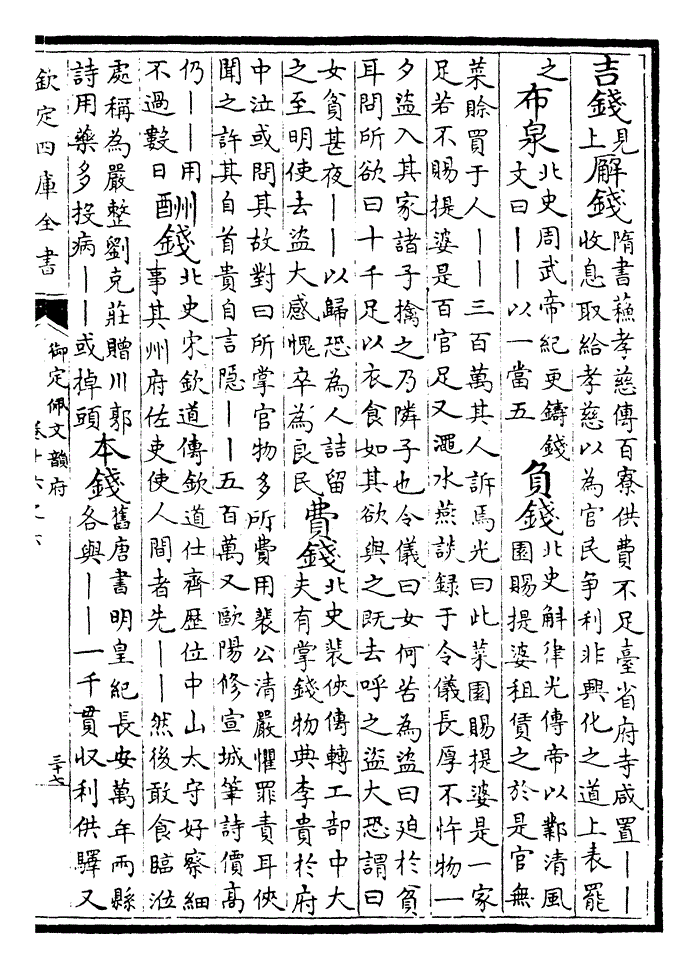 吉錢見上 廨錢隋書蘓孝慈傳百寮供費不足臺省府寺咸置丨丨
收息取給孝慈以為官民爭利非興化之道上表罷
之 布泉北史周武帝紀更鑄錢
文曰丨丨以一當五 負錢北史斛律光傳帝以鄴清風
園賜提婆租賃之於是官無
菜賒買于人丨丨三百萬其人訴焉光曰此菜園賜提婆是一家
足若不賜提婆是百官足又澠水燕談録于令儀長厚不忤物一
夕盜入其家諸子擒之乃隣子也令儀曰女何苦為盜曰廹於貧
耳問所欲曰十千足以衣食如其欲與之既去呼之盜大恐謂曰
女貧甚夜丨丨以歸恐為人詰留
之至明使去盜大感愧卒為良民 費錢北史裴俠傳轉工部中大
夫有掌錢物典李貴於府
中泣或問其故對曰所掌官物多所費用裴公清嚴懼罪責耳俠
聞之許其自首貴自言隱丨丨五百萬又歐陽修宣城筆詩價高
仍丨丨用
不過數日 酬錢北史宋欽道傳欽道仕齊歴位中山太守好察細
事其州府佐吏使人間者先丨丨然後敢食臨涖
處稱為嚴整劉克莊贈川郭
詩用藥多投病丨丨或掉頭 本錢舊唐書明皇紀長安萬年兩縣
各與丨丨一千貫収利供驛又
欽定四庫全書
御定佩文韻府
卷十六之六
三十七